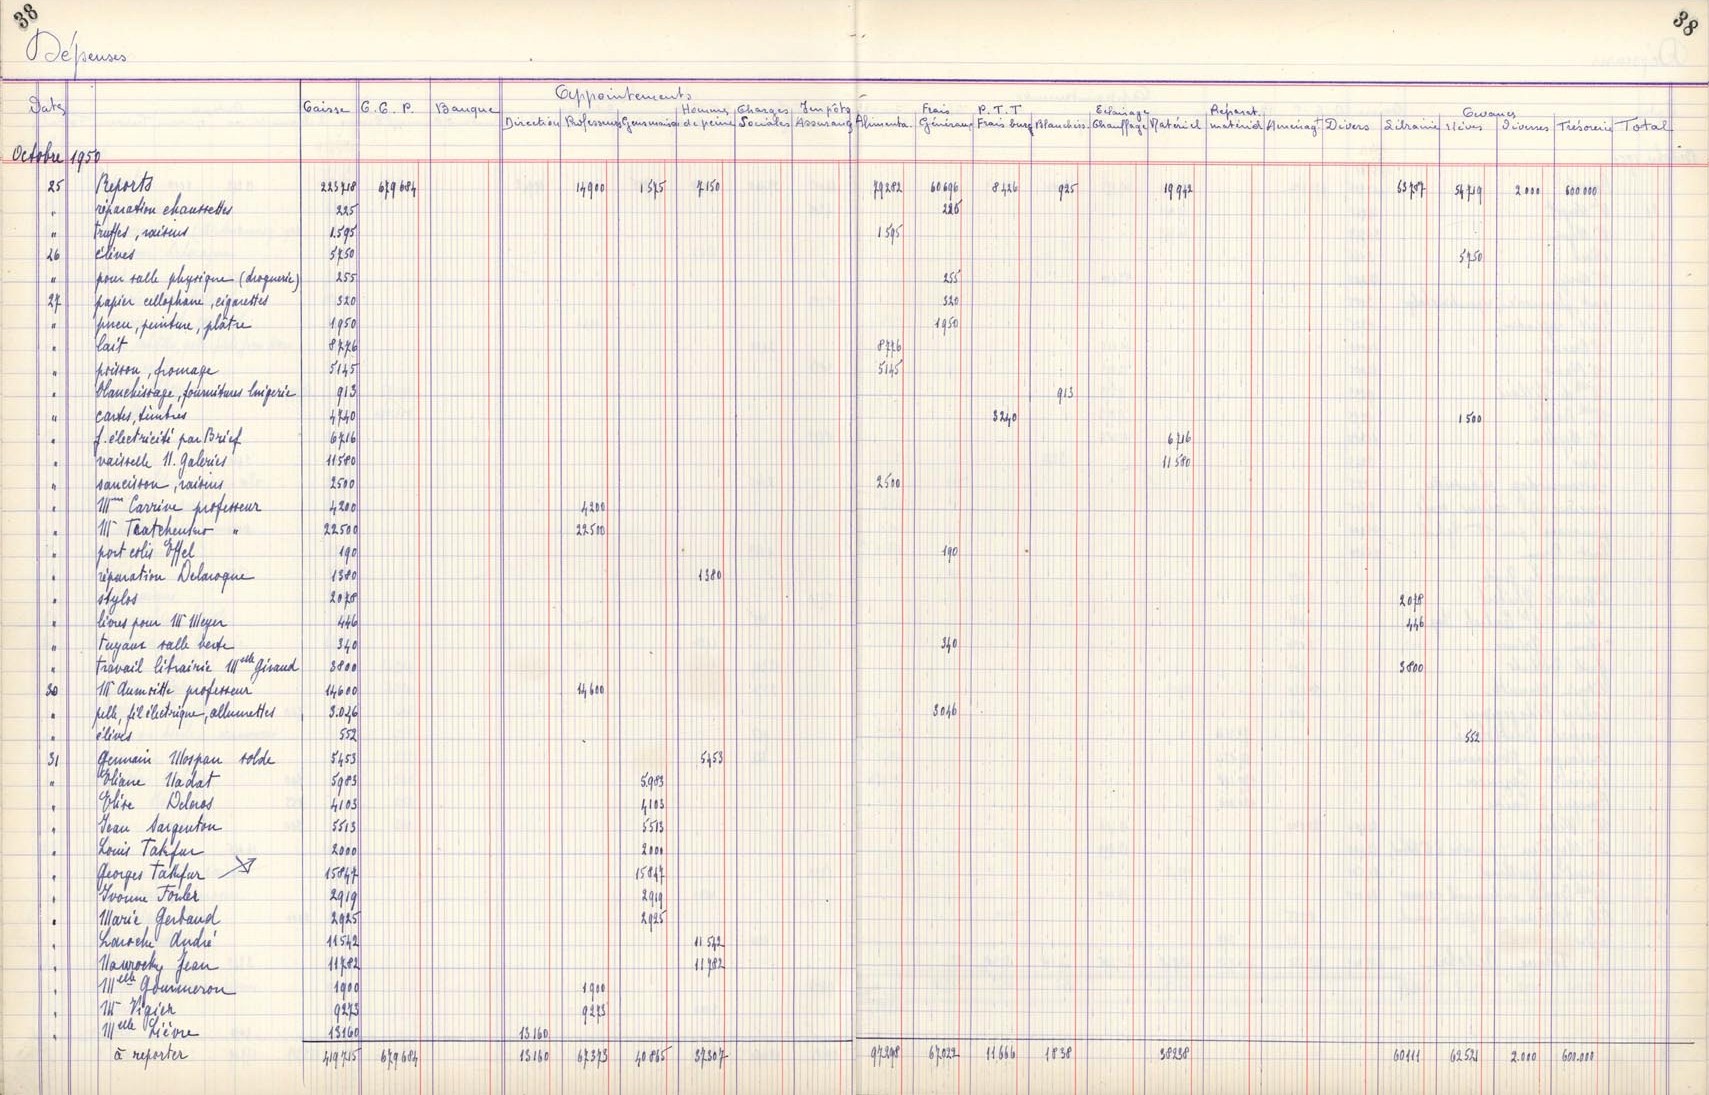 38 38
Dépenses
Appointements
Dates Caisse C.C.P. Banque Direction Professeurs Gens maison Homme de peine Charges Sociales Impôts Assurang Alimenta. Frais Généraux P.T.T Frais bureau Blanchiss. Eclairage Chauffage Matériel Réparat. matériel Aménagt Divers Librairie Avances Elèves diverses Trésorerie Total
Octobre 1950
25 Reports 223718 679684 14900 1575 7150 79282 60696 8426 925 19942 53787 54719 2.000 600 000
" réparation chaussettes 225 225
" truffes, raisins 1.595 1595
26 élèves 5750 5750
" pour salle physique (droguerie) 255 255
27 papier cellophane, cigarettes 320 320
" pneu, peinture, plâtre 1950 1950
" lait 8776 8776
" poisson, fromage 5145 5145
" blanchissage, fournitures lingerie 913 913
" cartes, timbres 4740 3240 1500
" f. électricité par Brief 6716 6716
" vaisselle N. Galeries 11580 11580
" saucisson, raisins 2500 2500
" Mme Carrive professeur 4200 4200
" Mr " 22500 22500
" port colis Effel 190 190
" réparation Delarogue 1380 1380
" stylos 2078 2078
" livres pour Mr Meyer 446 446
" tuyaux salle verte 340 340
" travail librairie Melle Giraud 3800 3800
30 Mr professeur 14600 14600
" pelle, fil électrique, allumettes 3.046 3046
" élèves 552 552
31 Germain Mospan solde 5453 5453
" Eliane Nadat 5983 5.983
" Elise Delcros 4103 4103
" Jean Sargenton 5513 5513
" Louis Takfur 2000 2000
" Georges Takfur 15847 15847
" Yvonne Fouler 2919 2919
" Marie Gerbaud 2925 2925
" Laroche André 11542 11542
" Nawrocky Jean 11782 11782
" Melle Gommeron 1900 1900
" Mr Vigier 9273 9273
" Melle Lièvre 13160 13160
à reporter 419715 679684 13160 67373 40865 37307 97298 67022 11666 1838 38238 60111 62521 2.000 600.000